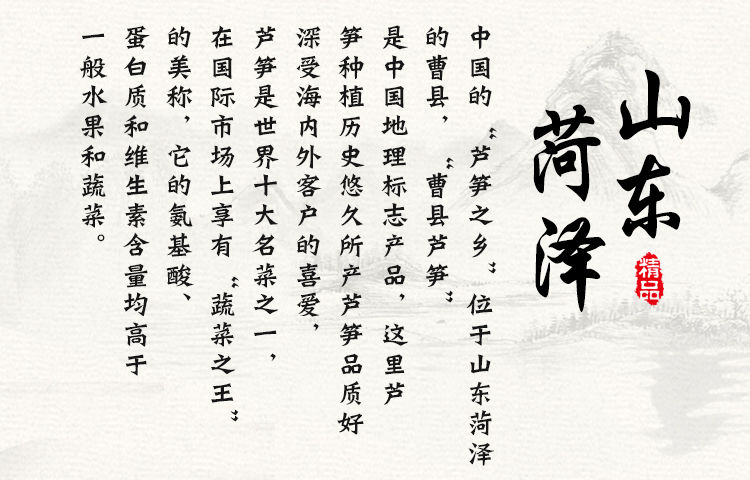 山东
菏泽
精品
中国的“芦笋之乡”位于山东菏泽
的曹县，“曹县芦笋”
是中国地理标志产品，这里芦
笋种植历史悠久所产芦笋品质好
深受海内外客户的喜爱，
芦笋是世界十大名菜之一，
在国际市场上享有“蔬菜之王”
的美称，它的氨基酸、
蛋白质和维生素含量均高于
一般水果和蔬菜。